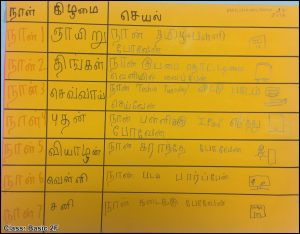 நாள் கிழமை செயல்
நாள் 1 ஞாயிறு நான் தமிழ் பள்ளி
போவேன்
நாள் 2 திங்கள் நான் குப்பை தொட்டியை
வெளியில் வைப்பேன்
நாள் 3 செவ்வாய் நான்
செய்வேன்
நாள் 4 புதன் நான் பள்ளிக்கு
போவேன்
நாள் 5 வியாழன் நான் கராத்தே போவேன்
நாள் 6 வெள்ளி நான் படம் பார்ப்பேன்
நாள் 7 சனி நான் கடைக்கு போவேன்
Class: Basic 2E